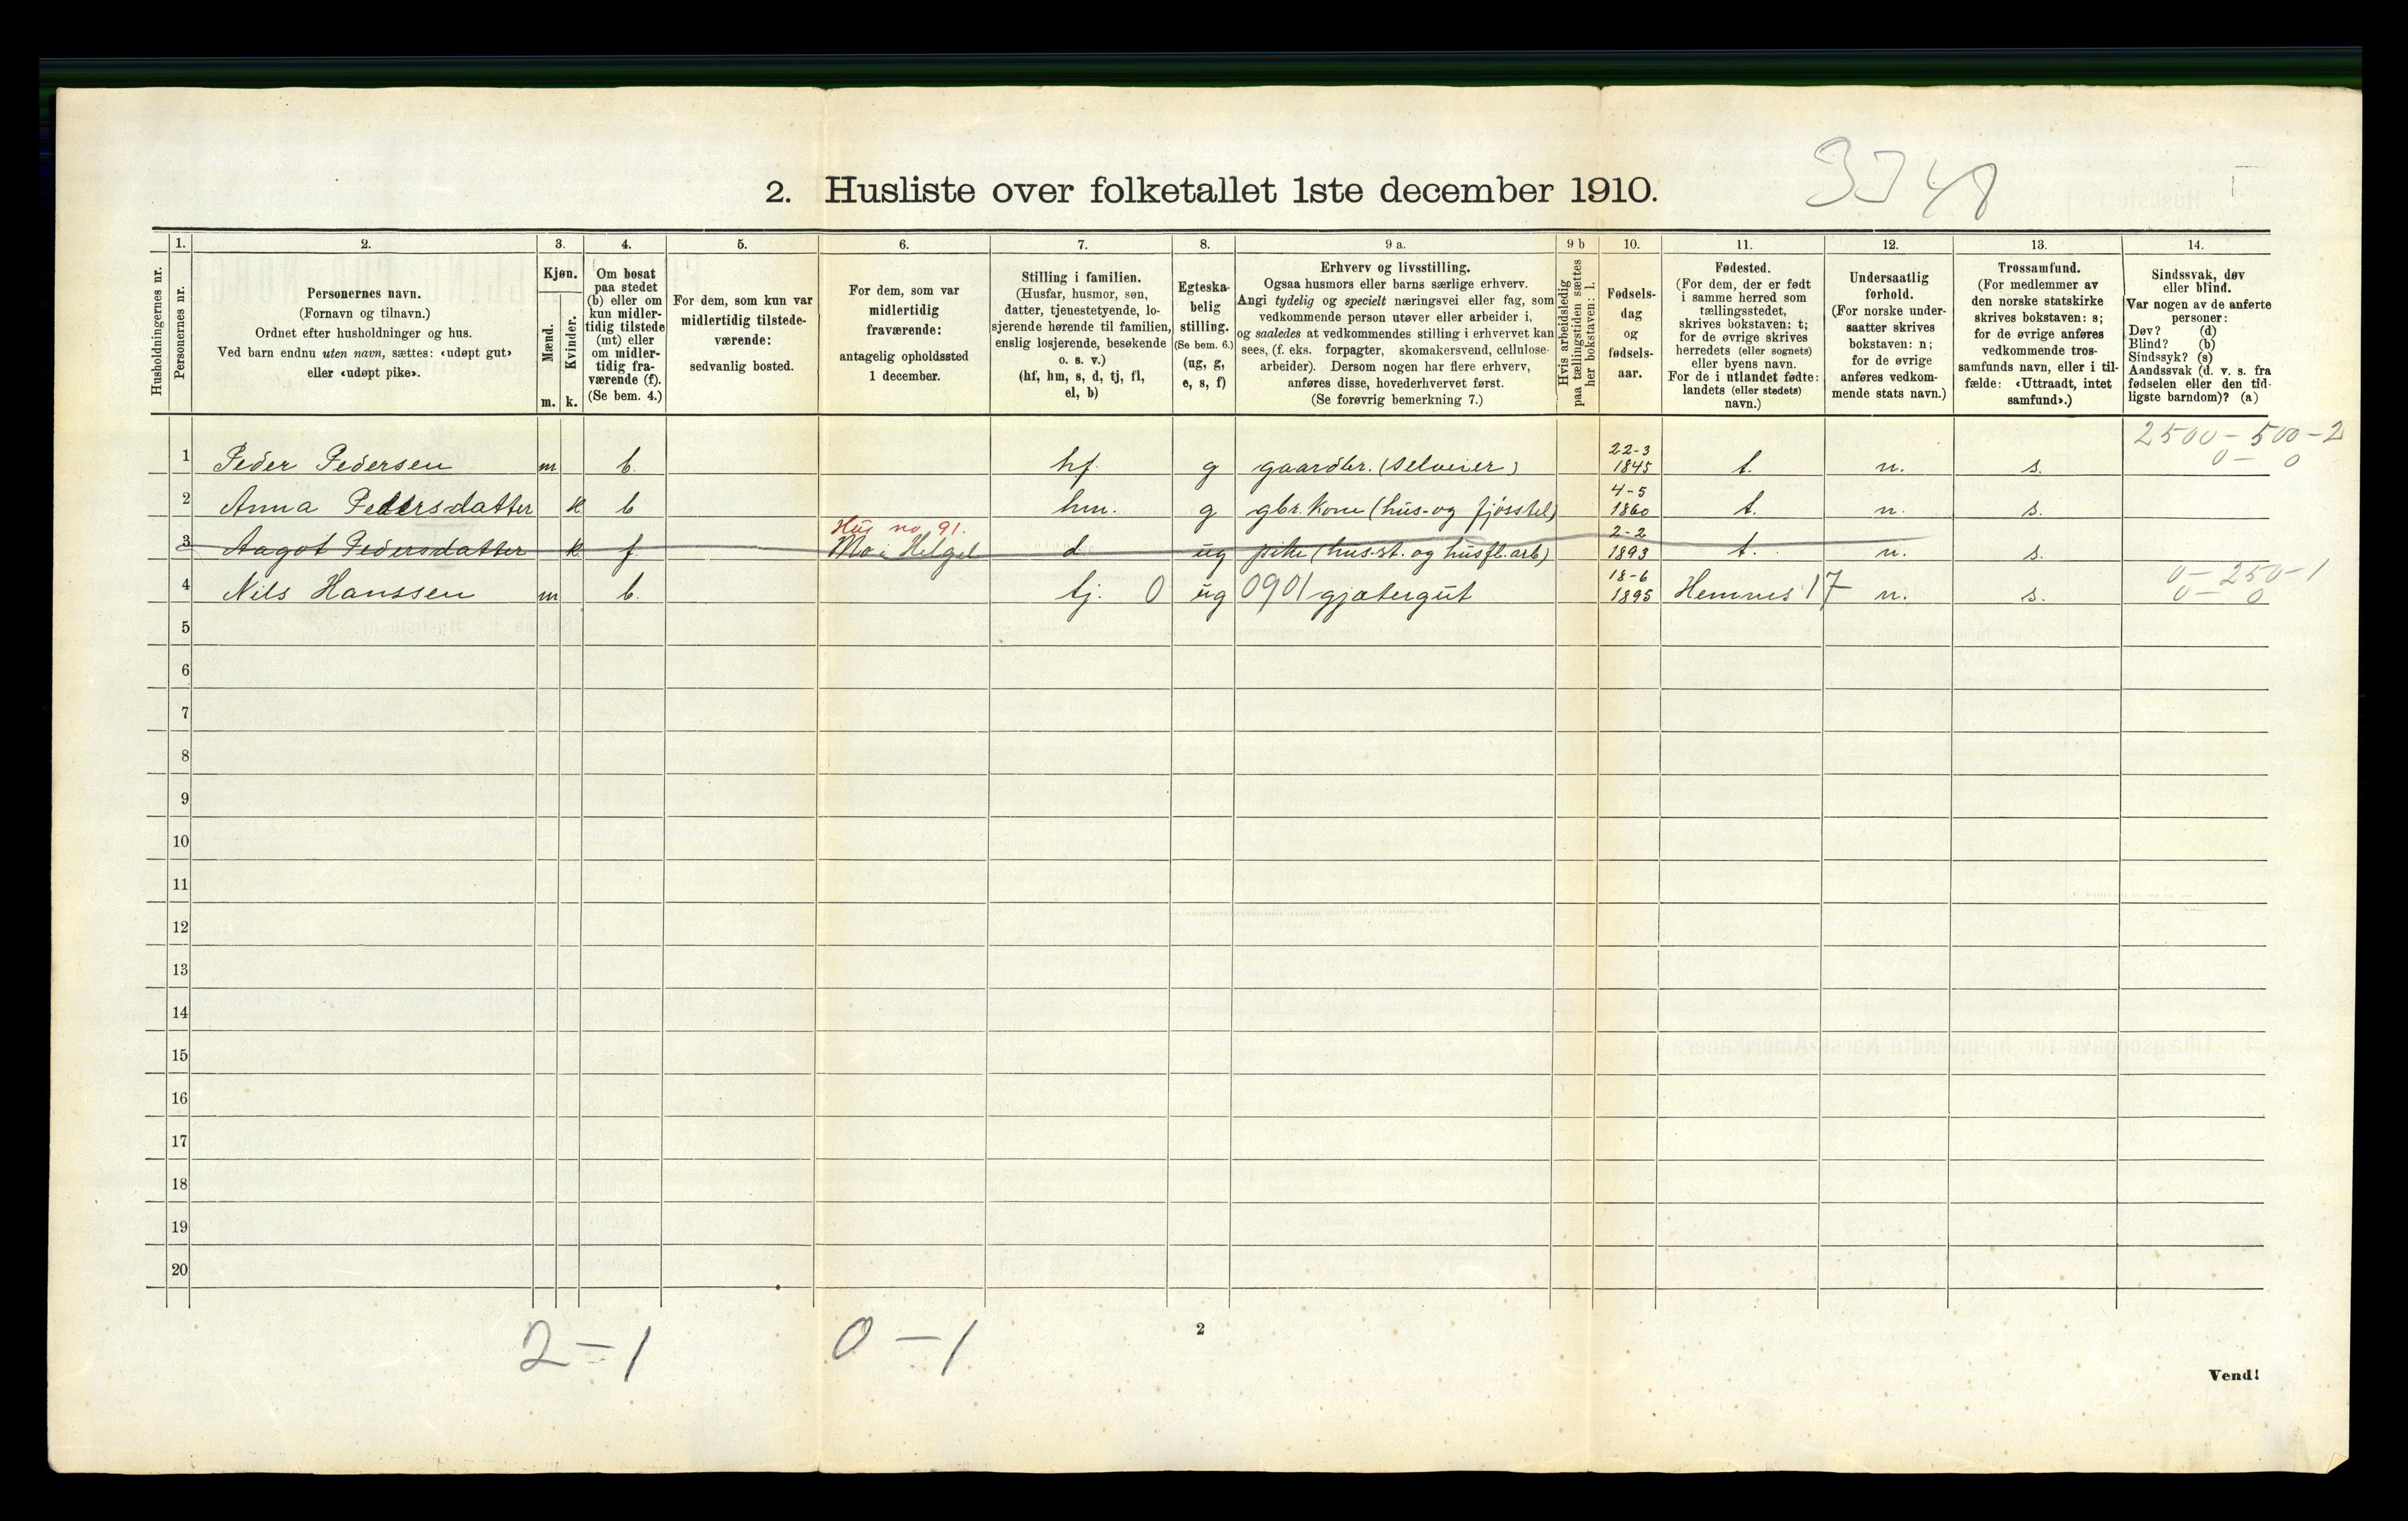 3348
2. Husliste over folketallet 1ste december 1910.
Husholdningernes nr.
1. Personernes nr.
2. Personernes navn.
(Fornavn og tilnavn.)
Ordnet efter husholdninger og hus.
Ved barn endnu uten navn, sættes: «udøpt gut»
eller «udøpt pike».
3. Kjøn.
Mænd. m.
Kvinder. k.
4. Om bosat
paa stedet
(b) eller om
kun midler-
tidig tilstede
(mt) eller
om midler-
tidig fra-
værende (f).
(Se bem. 4.)
5. For dem, som kun var
midlertidig tilstede-
værende:
sedvanlig bosted.
6. For dem, som var
midlertidig
fraværende:
antagelig opholdssted
1 december.
7. Stilling i familien.
(Husfar, husmor, søn,
datter, tjenestetyende, lo-
sjerende hørende til familien,
enslig losjerende, besøkende
o. s. v.)
(hf, hm, s, d, tj, fl,
el, b)
8. Egteska-
belig
stilling.
(Se bem. 6.)
(ug, g,
e, s, f)
9 a. Erhverv og livsstilling.
Ogsaa husmors eller barns særlige erhverv.
Angi tydelig og specielt næringsvei eller fag, som
vedkommende person utøver eller arbeider i,
og saaledes at vedkommendes stilling i erhvervet kan
sees, (f. eks. forpagter, skomakersvend, cellulose-
arbeider). Dersom nogen har flere erhverv,
anføres disse, hovederhvervet først.
(Se forøvrig bemerkning 7.)
9 b Hvis arbeidsledig
paa tællingstiden sættes
her bokstaven: l.
10. Fødsels-
dag
og
fødsels-
aar.
11. Fødested.
(For dem, der er født
i samme herred som
tællingsstedet,
skrives bokstaven: t;
for de øvrige skrives
herredets (eller sognets)
eller byens navn.
For de i utlandet fødte:
landets (eller stedets)
navn.)
12. Undersaatlig
forhold.
(For norske under-
saatter skrives
bokstaven: n;
for de øvrige
anføres vedkom-
mende stats navn.)
13. Trossamfund.
(For medlemmer av
den norske statskirke
skrives bokstaven: s;
for de øvrige anføres
vedkommende tros-
samfunds navn, eller i til-
fælde: «Uttraadt, intet
samfund».)
14. Sindssvak, døv
eller blind.
Var nogen av de anførte
personer:
Døv? (d)
Blind? (b)
Sindssyk? (s)
Aandssvak (d. v. s. fra
fødselen eller den tid-
ligste barndom)? (a)
2500-500-2
0- 0
1 Peder Pedersen m b. hf. g gaardbr. (selveier) 22-3 1845 t. n. s.
2 Anna Pedersdatter k b hm. g gbr. kone (hus- og fjøsstel) 4-5 1860 t. n. s.
Hus no. 91.
3 Aagot Pedersdatter k f. Mo i Helgel d ug pike (hus-st. og husfl. arb) 2-2 1893 t. n. s.
4 Nils Hanssen m b. tj. 0 ug 0901 gjætergut 18-6 1895 Hemnes 17 n. s. 0-250-1
0- 0
5
6
7
8
9
10
11
12
13
14
15
16
17
18
19
20
2-1 0-1
2
Vend!